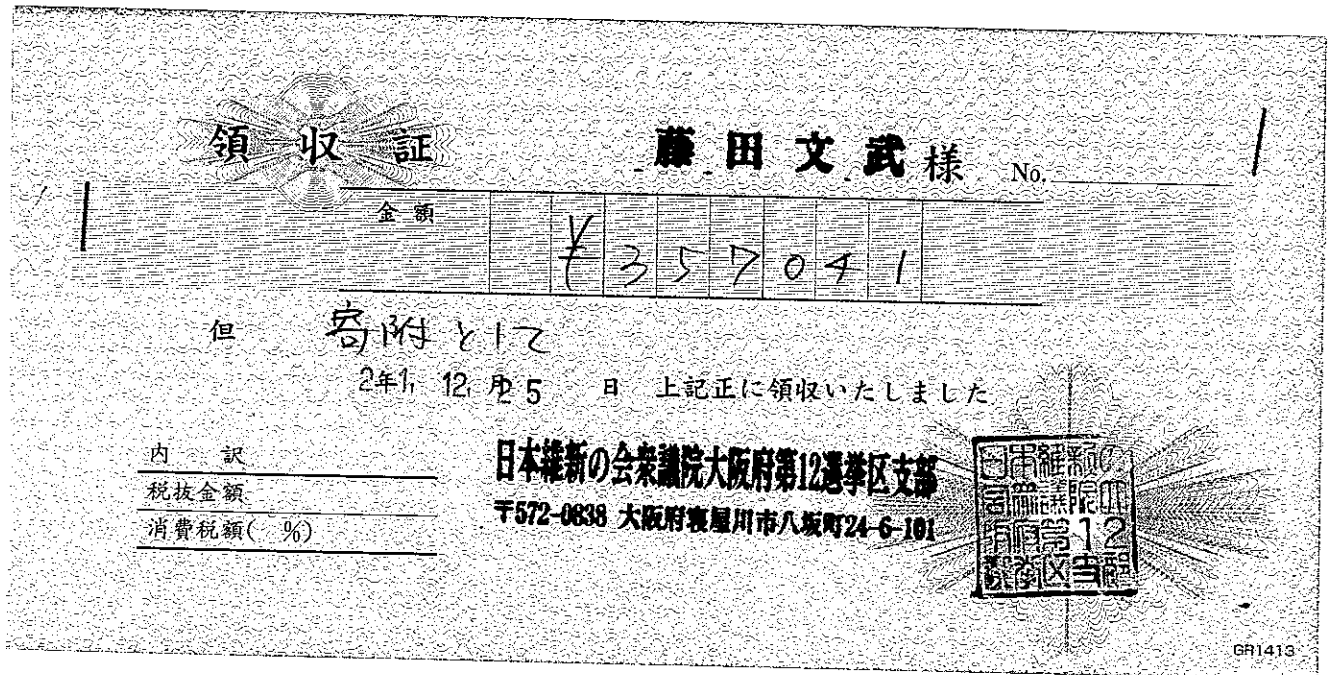 領収証
藤田文武様 No.
金額 ¥357041
但 寄附として
2年1, 12, 月25 日 上記正に領収いたしました
内訳
税抜金額
消費税額( %)
日本維新の会衆議院大阪府第12選挙区支部
〒572-0838 大阪府寝屋川市八坂町24-6-101
GR1413